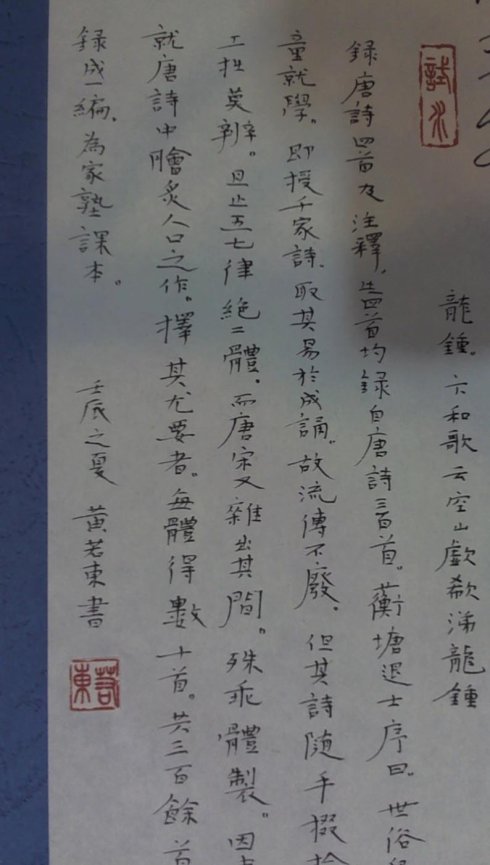 龍鍾。卞和歌云空山歔欷涕龍鍾
錄唐詩四首及注釋，此四首均錄自唐詩三百首。蘅塘退士序曰。世俗
童就學。即授千家詩。取其易於成誦。故流傳不廢。但其詩隨手掇
工拙莫辨。且止五七律絕二體。而唐宋又雜出其間。殊乖體製。因
就唐詩中膾炙人口之作。擇其尤要者。每體得數十首。共三百餘首
錄成一編。為家塾課本。 壬辰之夏 黃若東書
若東